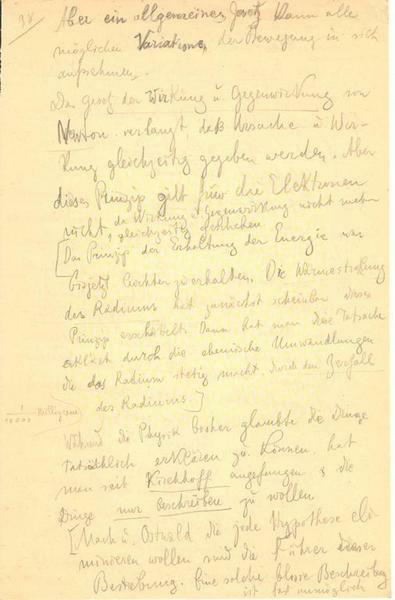 38
Aber ein allgemeines Gesetz kann alle
möglichen Variationen der Bewegung in sich
aufnehmen.
Das Gesetz der Wirkung u Gegenwirkung von
Newton verlangt, daß Ursache u Wir-
kung gleichzeitig gegeben werden. Aber
dieses Prinzip gilt für die Elektronen
nicht, da Wirkung u Gegenwirkung nicht mehr
gleichzeitig
[Das Prinzip der Erhaltung der Energie war
bisjetzt leichter zu erhalten. Die Wärmestrahlung
des Radiums hat zunächst scheinbar dieses
Prinzip erschüttert. Dann hat man diese Tatsache
erklärt durch die chemische Umwandlungen
die das Radium stetig macht durch den Zerfall
des Radiums]
1 Milligramm
Während die Physik bisher glaubte die Dinge
tatsächlich erklären zu können, hat
man seit Kirchhoff angefangen, die
Dinge nur beschreiben zu wollen
[Mach u. Ostwald die jede Hypothese eli-
minieren wollen sind die Führer dieser
Bestrebung. Eine solche blosse Beschreibung
ist fast unmöglich